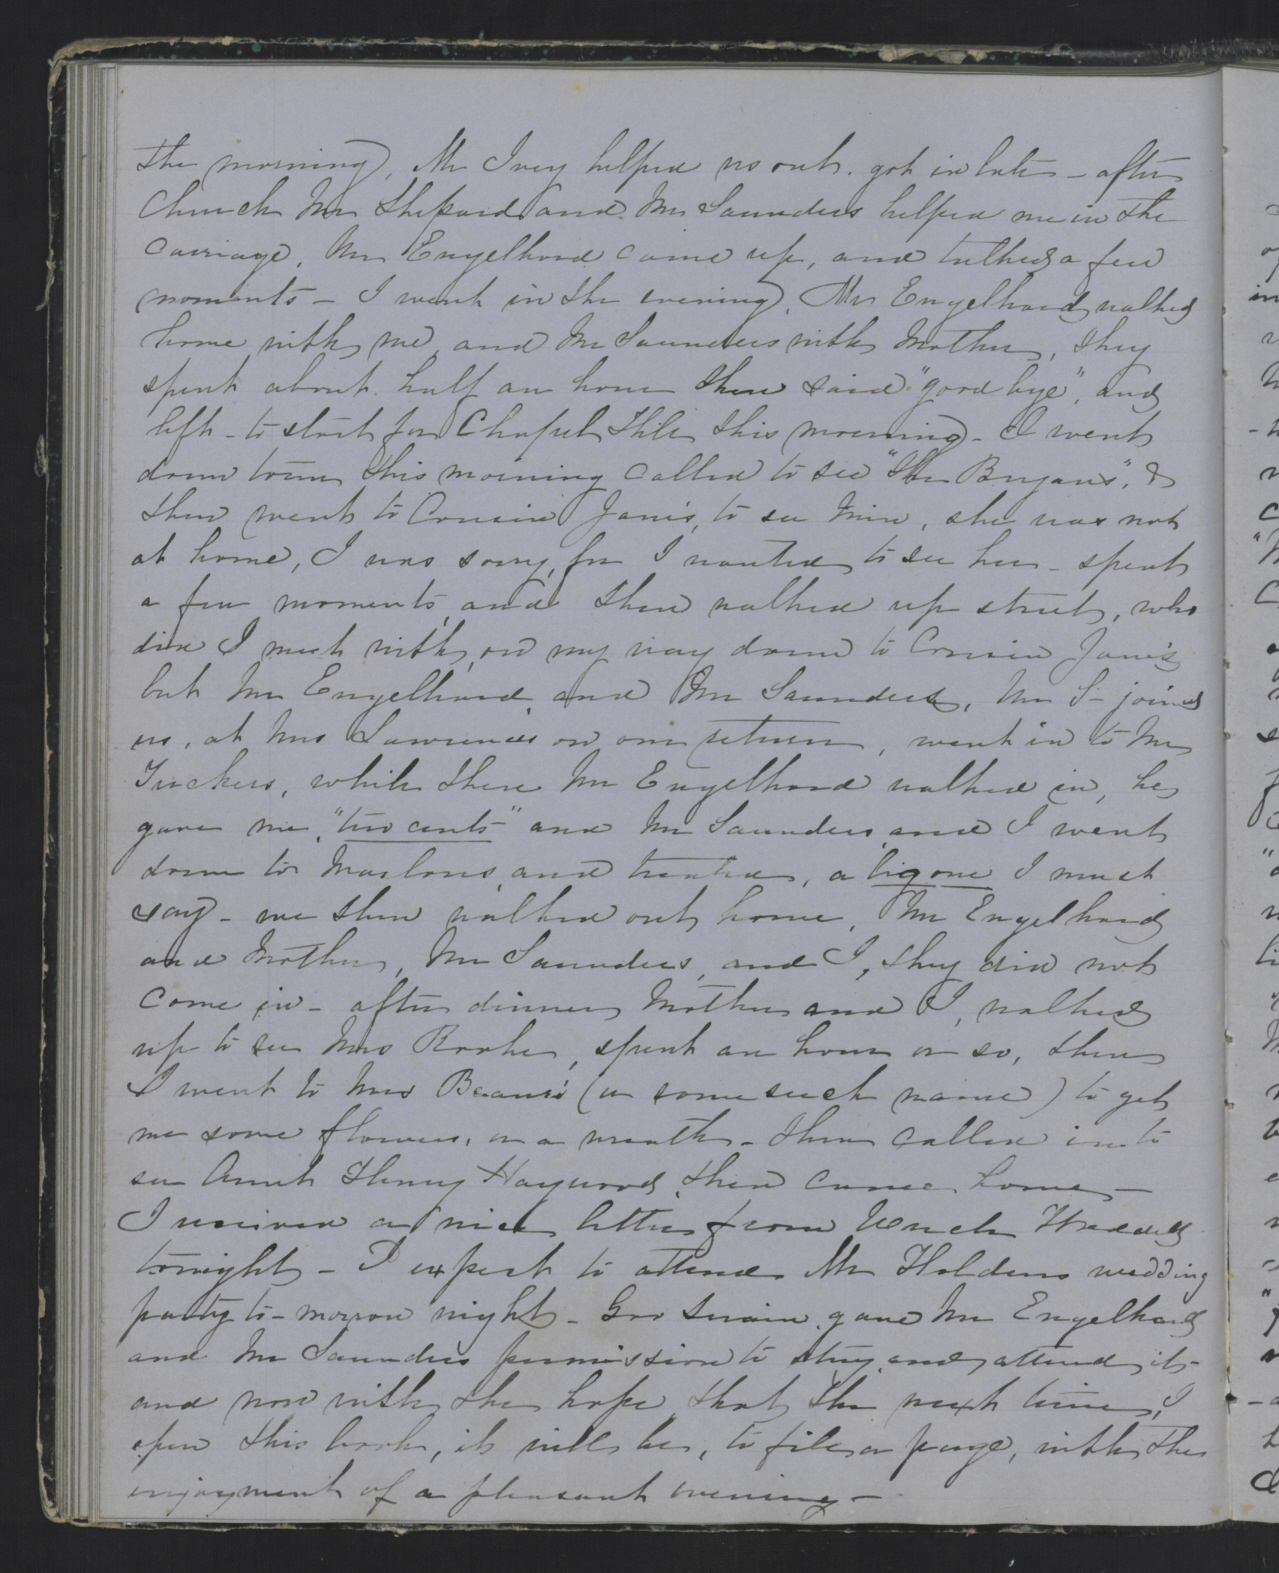 the morning, Mr Ivey helped us out. got in late - after
Church Mr Shepard and Mr Saunders helped me in the
carriage, Mr Engelhard came up, and talked a few
moments - I went in the evening, Mr Engelhard walked
home with me, and Mr Saunders with Mother, they
spent about half an hour then said "good bye", and
left - to start for Chapel Hill this morning - I went
down town this morning called to see "the Bryans", &
then went to Cousin Jane's, to see Mine, she was not
at home, I was sorry, for I wanted to see her - spent
a few moments, and then walked up street, who
did I meet with, on my way down to Cousin Jane's
but Mr Engelhard, and Mr Saunders, Mr S - joined
us, at Mrs Lawrence's on our return, went in to Mr
Tuckers, while there Mr Engelhard walked in, he
gave me, "two cents" and Mr Saunders, and I went
down to and treated, a big one I must
say - we then walked out home, Mr Engelhard
and Mother, Mr Saunders, and I, they did not
come in - after dinner Mother and I, walked
up to see Mrs, spent an hour or so, then
I went to Mrs (or some such name) to get
me some flowers, or a wreath - then called in to
see Aunt Henry Haywood, then came home -
I received a nice letter from
tonight - I expect to attend Mr Holdens wedding
party to-morrow night - Gov Swain, gave Mr Engelhard
and Mr Saunders permission to stay, and attend it -
and now with the hope that the next time, I
open this book, it will be, to fill a page, with the
enjoyment of a pleasant evening -